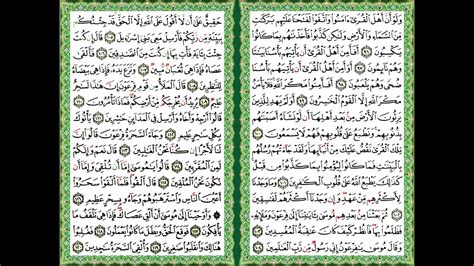 وَلَوْ أَنَّ أَهْلَ ٱلْقُرَىٰٓ ءَامَنُوا۟ وَٱتَّقَوْا۟ لَفَتَحْنَا عَلَيْهِم بَرَكَـٰتٍ
مِّنَ ٱلسَّمَآءِ وَٱلْأَرْضِ وَلَـٰكِن كَذَّبُوا۟ فَأَخَذْنَـٰهُم بِمَا كَانُوا۟
يَكْسِبُونَ ٩٦ أَفَأَمِنَ أَهْلُ ٱلْقُرَىٰٓ أَن يَأْتِيَهُم بَأْسُنَا بَيَـٰتًا
وَهُمْ نَآئِمُونَ ٩٧ أَوَأَمِنَ أَهْلُ ٱلْقُرَىٰٓ أَن يَأْتِيَهُم بَأْسُنَا
ضُحًى وَهُمْ يَلْعَبُونَ ٩٨ أَفَأَمِنُوا۟ مَكْرَ ٱللَّهِ فَلَا يَأْمَنُ
مَكْرَ ٱللَّهِ إِلَّا ٱلْقَوْمُ ٱلْخَـٰسِرُونَ ٩٩ أَوَلَمْ يَهْدِ لِلَّذِينَ
يَرِثُونَ ٱلْأَرْضَ مِنۢ بَعْدِ أَهْلِهَآ أَن لَّوْ نَشَآءُ أَصَبْنَـٰهُم
بِذُنُوبِهِمْ وَنَطْبَعُ عَلَىٰ قُلُوبِهِمْ فَهُمْ لَا يَسْمَعُونَ ١٠٠
تِلْكَ ٱلْقُرَىٰ نَقُصُّ عَلَيْكَ مِنْ أَنۢبَآئِهَا وَلَقَدْ جَآءَتْهُمْ رُسُلُهُم
بِٱلْبَيِّنَـٰتِ فَمَا كَانُوا۟ لِيُؤْمِنُوا۟ بِمَا كَذَّبُوا۟ مِن قَبْلُ
كَذَٰلِكَ يَطْبَعُ ٱللَّهُ عَلَىٰ قُلُوبِ ٱلْكَـٰفِرِينَ ١٠١ وَمَا وَجَدْنَا
لِأَكْثَرِهِم مِّنْ عَهْدٍ وَإِن وَجَدْنَآ أَكْثَرَهُمْ لَفَـٰسِقِينَ
١٠٢ ثُمَّ بَعَثْنَا مِنۢ بَعْدِهِم مُّوسَىٰ بِـَٔايَـٰتِنَآ إِلَىٰ فِرْعَوْنَ
وَمَلَإِي۟هِۦ فَظَلَمُوا۟ بِهَا فَٱنظُرْ كَيْفَ كَانَ عَـٰقِبَةُ ٱلْمُفْسِدِينَ
١٠٣ وَقَالَ مُوسَىٰ يَـٰفِرْعَوْنُ إِنِّى رَسُولٌ مِّن رَّبِّ ٱلْعَـٰلَمِينَ ١٠٤
حَقِيقٌ عَلَىٰٓ أَن لَّآ أَقُولَ عَلَى ٱللَّهِ إِلَّا ٱلْحَقَّ قَدْ جِئْتُكُم
بِبَيِّنَةٍ مِّن رَّبِّكُمْ فَأَرْسِلْ مَعِىَ بَنِىٓ إِسْرَٰٓءِيلَ ١٠٥ قَالَ إِن كُنتَ
جِئْتَ بِـَٔايَةٍ فَأْتِ بِهَآ إِن كُنتَ مِنَ ٱلصَّـٰدِقِينَ ١٠٦ فَأَلْقَىٰ
عَصَاهُ فَإِذَا هِىَ ثُعْبَانٌ مُّبِينٌ ١٠٧ وَنَزَعَ يَدَهُۥ فَإِذَا هِىَ بَيْضَآءُ
لِلنَّـٰظِرِينَ ١٠٨ قَالَ ٱلْمَلَأُ مِن قَوْمِ فِرْعَوْنَ إِنَّ هَـٰذَا لَسَـٰحِرٌ
عَلِيمٌ ١٠٩ يُرِيدُ أَن يُخْرِجَكُم مِّنْ أَرْضِكُمْ فَمَاذَا تَأْمُرُونَ ١١٠
قَالُوٓا۟ أَرْجِهْ وَأَخَاهُ وَأَرْسِلْ فِى ٱلْمَدَآئِنِ حَـٰشِرِينَ ١١١ يَأْتُوكَ
بِكُلِّ سَـٰحِرٍ عَلِيمٍ ١١٢ وَجَآءَ ٱلسَّحَرَةُ فِرْعَوْنَ قَالُوٓا۟ إِنَّ
لَنَا لَأَجْرًا إِن كُنَّا نَحْنُ ٱلْغَـٰلِبِينَ ١١٣ قَالَ نَعَمْ وَإِنَّكُمْ
لَمِنَ ٱلْمُقَرَّبِينَ ١١٤ قَالُوا۟ يَـٰمُوسَىٰٓ إِمَّآ أَن تُلْقِىَ وَإِمَّآ أَن نَّكُونَ
نَحْنُ ٱلْمُلْقِينَ ١١٥ قَالَ أَلْقُوا۟ فَلَمَّآ أَلْقَوْا۟ سَحَرُوٓا۟
أَعْيُنَ ٱلنَّاسِ وَٱسْتَرْهَبُوهُمْ وَجَآءُو بِسِحْرٍ عَظِيمٍ ١١٦
وَأَوْحَيْنَآ إِلَىٰ مُوسَىٰٓ أَنْ أَلْقِ عَصَاكَ فَإِذَا هِىَ تَلْقَفُ مَا
يَأْفِكُونَ ١١٧ فَوَقَعَ ٱلْحَقُّ وَبَطَلَ مَا كَانُوا۟ يَعْمَلُونَ ١١٨ فَغُلِبُوا۟
هُنَالِكَ وَٱنقَلَبُوا۟ صَـٰغِرِينَ ١١٩ وَأُلْقِىَ ٱلسَّحَرَةُ سَـٰجِدِينَ ١٢٠